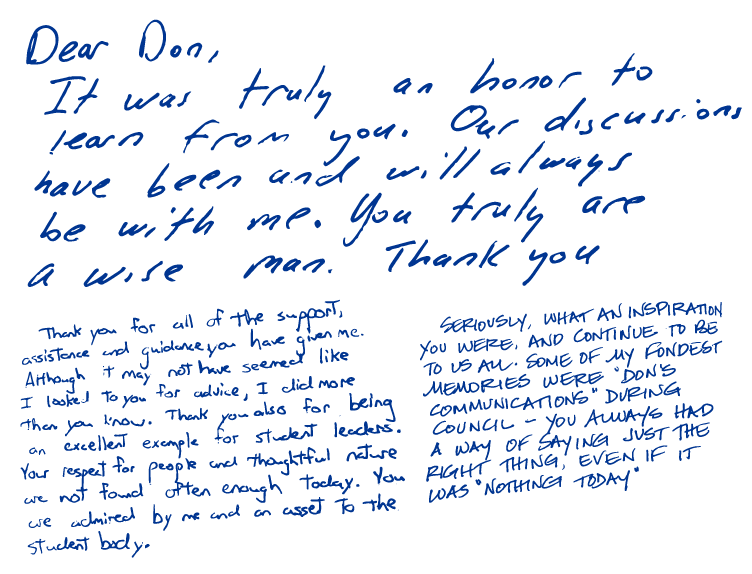 Dear Don,
It was truly an honor to
learn from you. Our discussions
have been and will always
be with me. You truly are
a wise man. Thank you
Thank you for all of the support,
assistance and guidance you have given me.
Although it may not have seemed like
I looked to you for advice, I did more
than you know. Thank you also for being
an excellent example for student leaders.
Your respect for people and thoughtful nature
are not found often enough today. You
are admired by me and an asset to the
student body.
SERIOUSLY, WHAT AN INSPIRATION
YOU WERE, AND CONTINUE TO BE
TO US ALL. SOME OF MY FONDEST
MEMORIES WERE "DON'S
COMMUNICATIONS" DURING
COUNCIL - YOU ALWAYS HAD
A WAY OF SAYING JUST THE
RIGHT THING, EVEN IF IT
WAS "NOTHING TODAY"